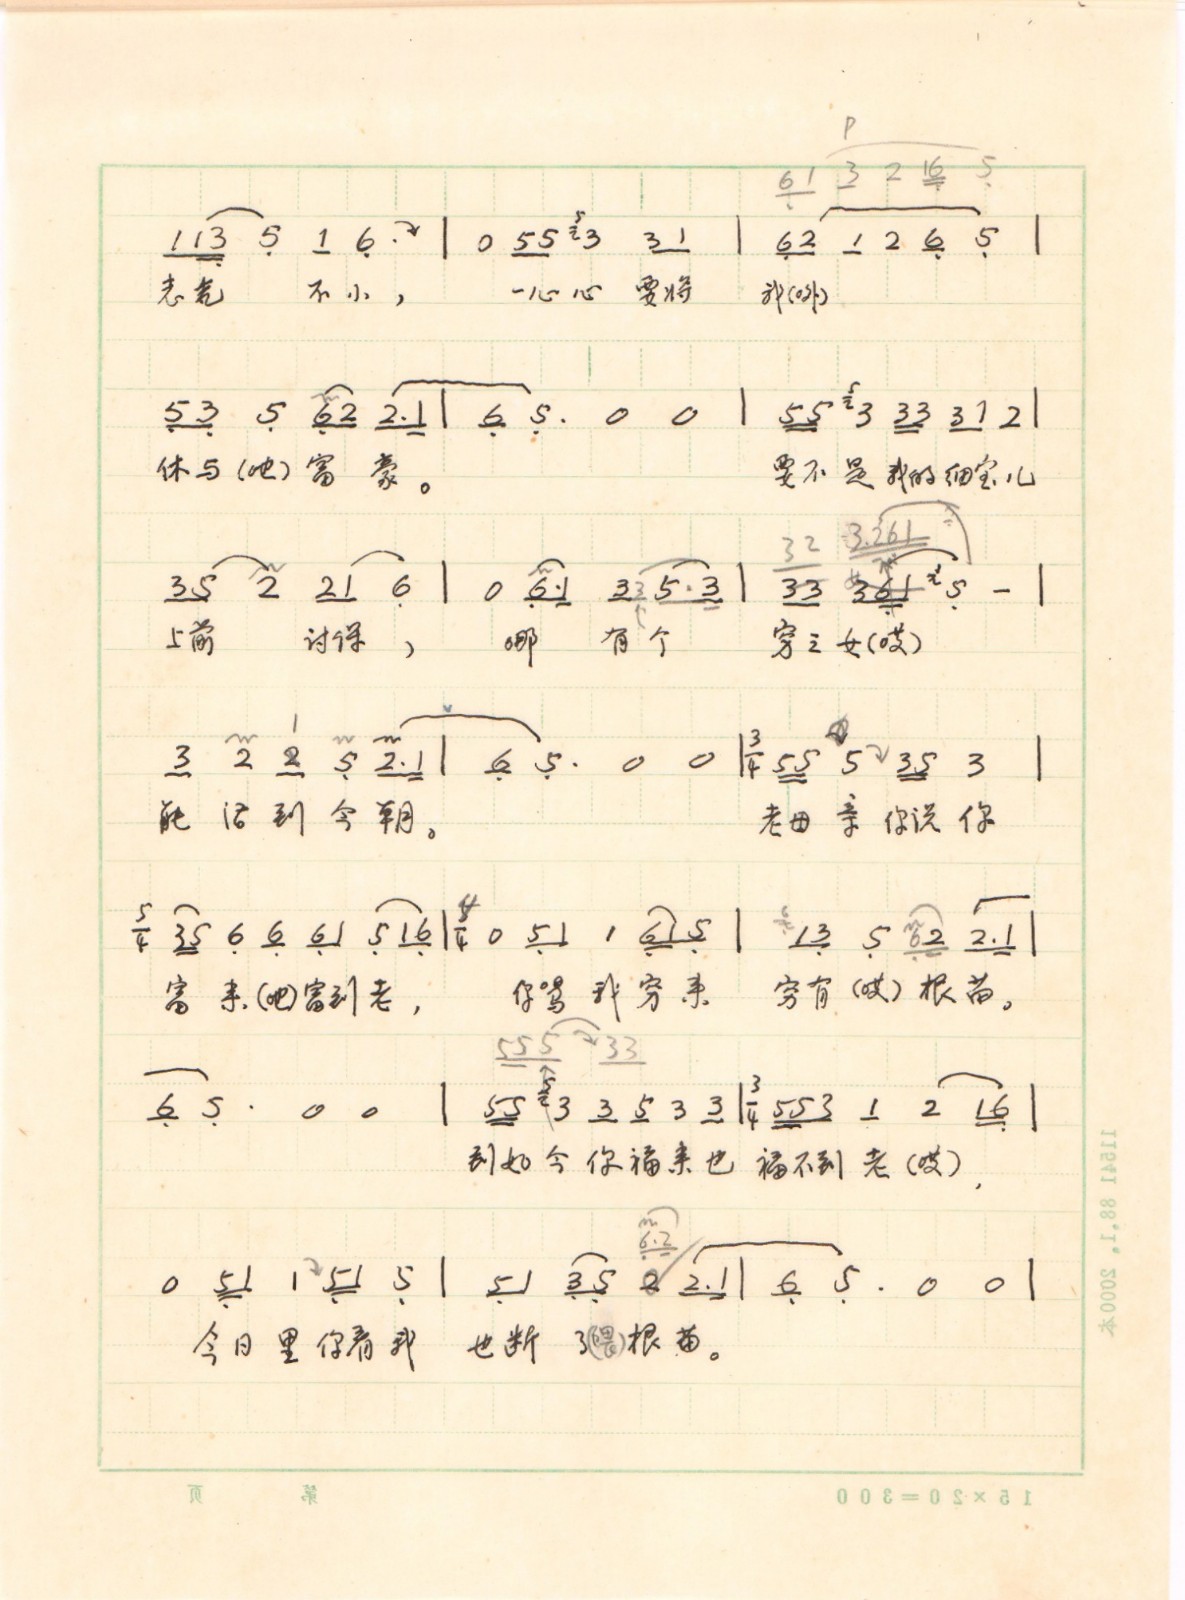 P
61 3 2 16 5
113 5 1 6· | 0 55 3 31 | 62 1 2 6 5 |
志气 不小, 一心心 要将 我(哟)
53 5 62 2·1 | 6 5· 0 0 | 55 3 33 31 2 |
休与(吔)富豪。 要不是我的细宝儿
32 3·261
35 2 21 6 | 0 6·1 3 5·3 | 33 361 5 - |
上前 讨保, 哪 有个 穷之女(哎)
3 2 2 5 2·1 | 6 5· 0 0 | 3/4 55 5 35 3 |
能活到今朝。 老母亲你说你
5/4 35 6 6 61 5 16 | 4/4 0 51 1 61 5 | 13 5 62 2·1 |
富来(吔)富到老, 你骂我穷来 穷有(哎)根苗。
555 33
6 5· 0 0 | 55 3 3 5 3 3 | 3/4 553 1 2 16 |
到如今你福来也 福不到老(哎),
6·2
0 51 1 51 5 | 51 35 2 2·1 | 6 5· 0 0 |
今日里你看我 也断了(喂)根苗。
11541 88.1. 2000本
第 页
15×20=300